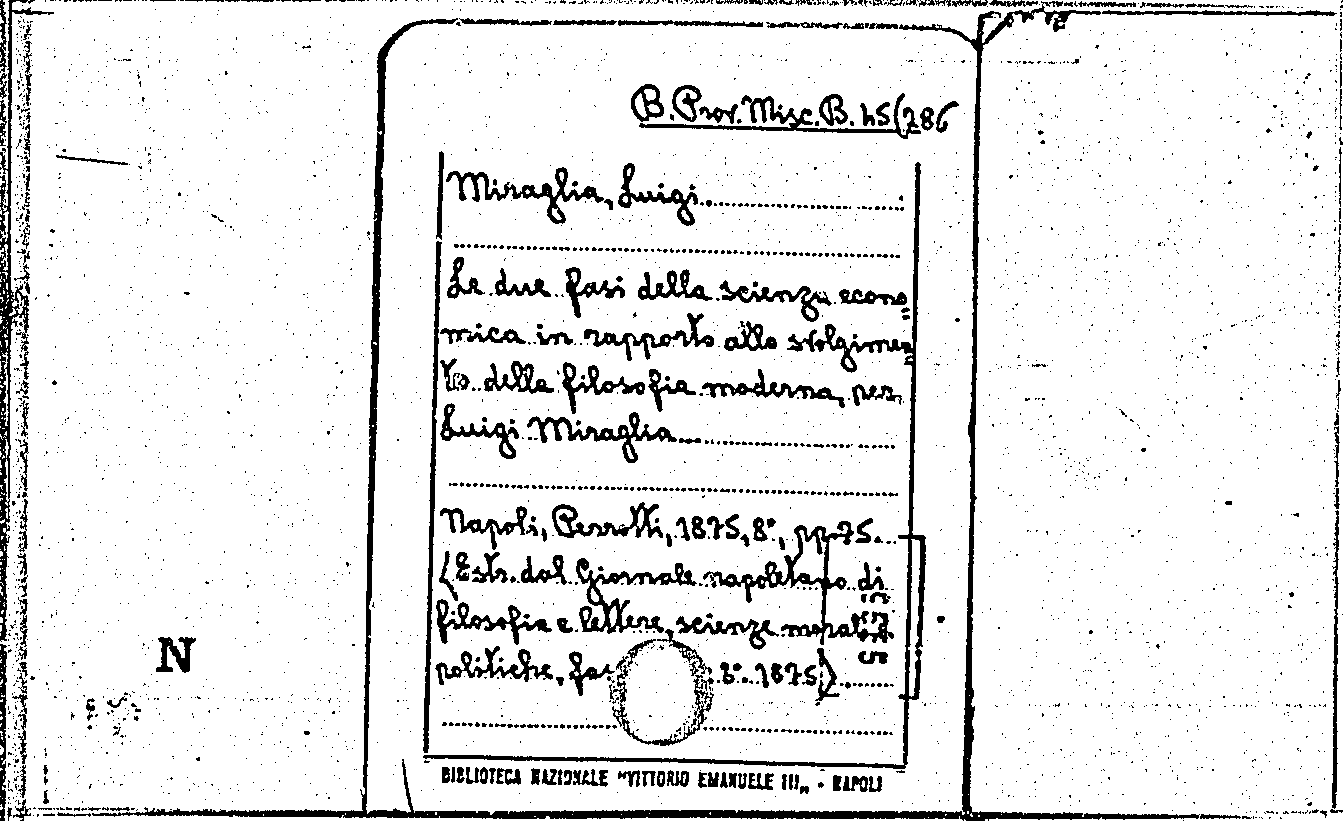 B. Prov. Misc. B. 45(286
Miraglia, Luigi
Le due fasi della scienza econo
mica in rapporto allo svolgimen
to della filosofia moderna, per
Luigi Miraglia
Napoli, Perrotti, 1875, 8°, pp. 75.
(Estr. dal Giornale napoletano di
filosofia e lettere, scienze morali e
politiche, fas 8°. 1875)
N
BIBLIOTECA NAZIONALE "VITTORIO EMANUELE III„ - NAPOLI